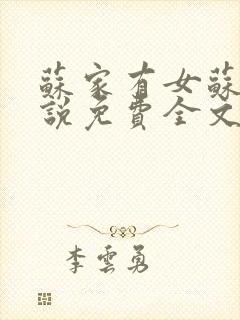 蘇家有女蘇
說免費全文
李雲勇